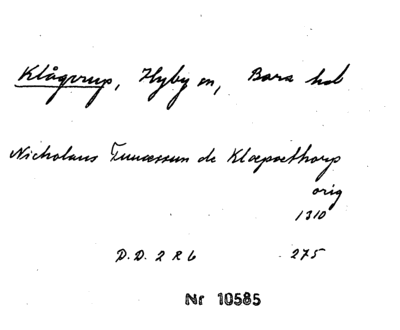 Klågerup, Hyby sn, Bara hd
Nicholaus Tuuæssun de Klæpsethorp
orig
1310
D.D. 2 R 6 275
Nr 10585